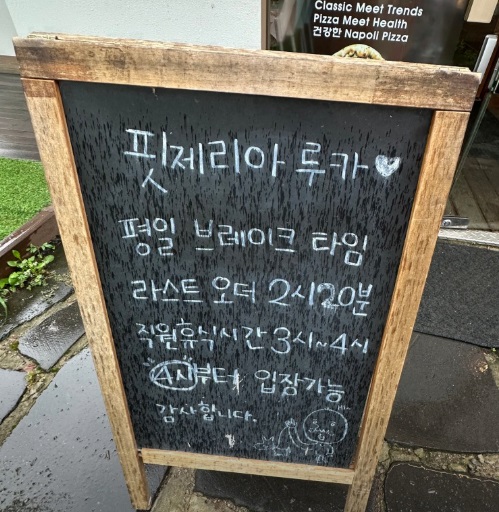 Classic Meet Trends
Pizza Meet Health
건강한 Napoli Pizza
핏제리아 루카♥
평일 브레이크 타임
라스트 오더 2시20분
직원휴식시간 3시~4시
4시부터 입장가능
감사합니다.